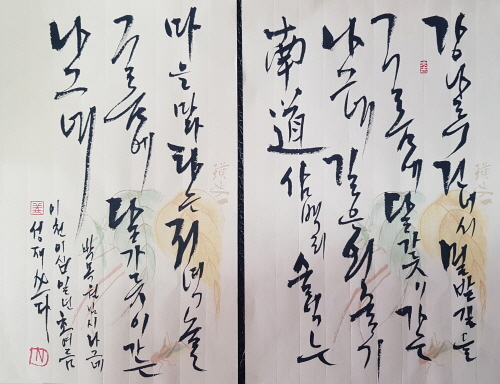 강나루 건너서 밀밭길을
구름에 달가듯이 가는
나그네 길은 외줄기
南道 삼백리 술익는
마을마다 타는 저녁놀
구름에 달가듯이 가는
나그네
박목월님 시 나그네
이천이십일년 초여름
성재 쓰다